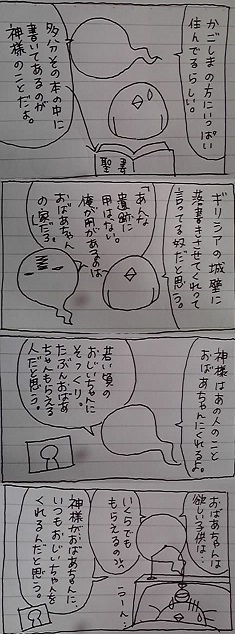 かごしまの方にいっぱい
住んでるらしい。
多分その本の中に
書いてあるのが
神様のことだよ。
聖書
ギリシアの城壁に
落書きさせてくれって
言ってる奴だと思う。
「あんな
遺跡に
用はない。
俺が用があるのは
おばあちゃん
の家だ。
神様はあの人のこと
おばあちゃんにくれるよ。
若い頃の
おじいちゃんに
そっくり。
たぶんおばあ
ちゃんもらえる
人だと思う。
おばあちゃんは
欲しい子供は…
いくらでも
もらえるの?
うーん…
神様がおばあちゃんに、
いつもおじいちゃんを
くれるんだと思う。